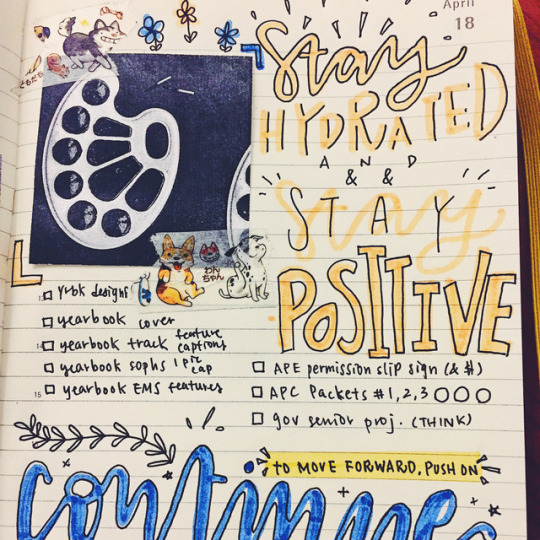 April
18
ともだち
Stay
HYDRATED
AND
& &
STAY
POSITIVE
わん
ちゃん
13
yrbk designs
yearbook cover
14
yearbook track feature captions
yearbook sophs 1 pic cap
15
yearbook EMS features
APE permission slip sign (& $)
APC Packets #1, 2, 3
gov senior proj. (THINK)
TO MOVE FORWARD, PUSH ON
continue